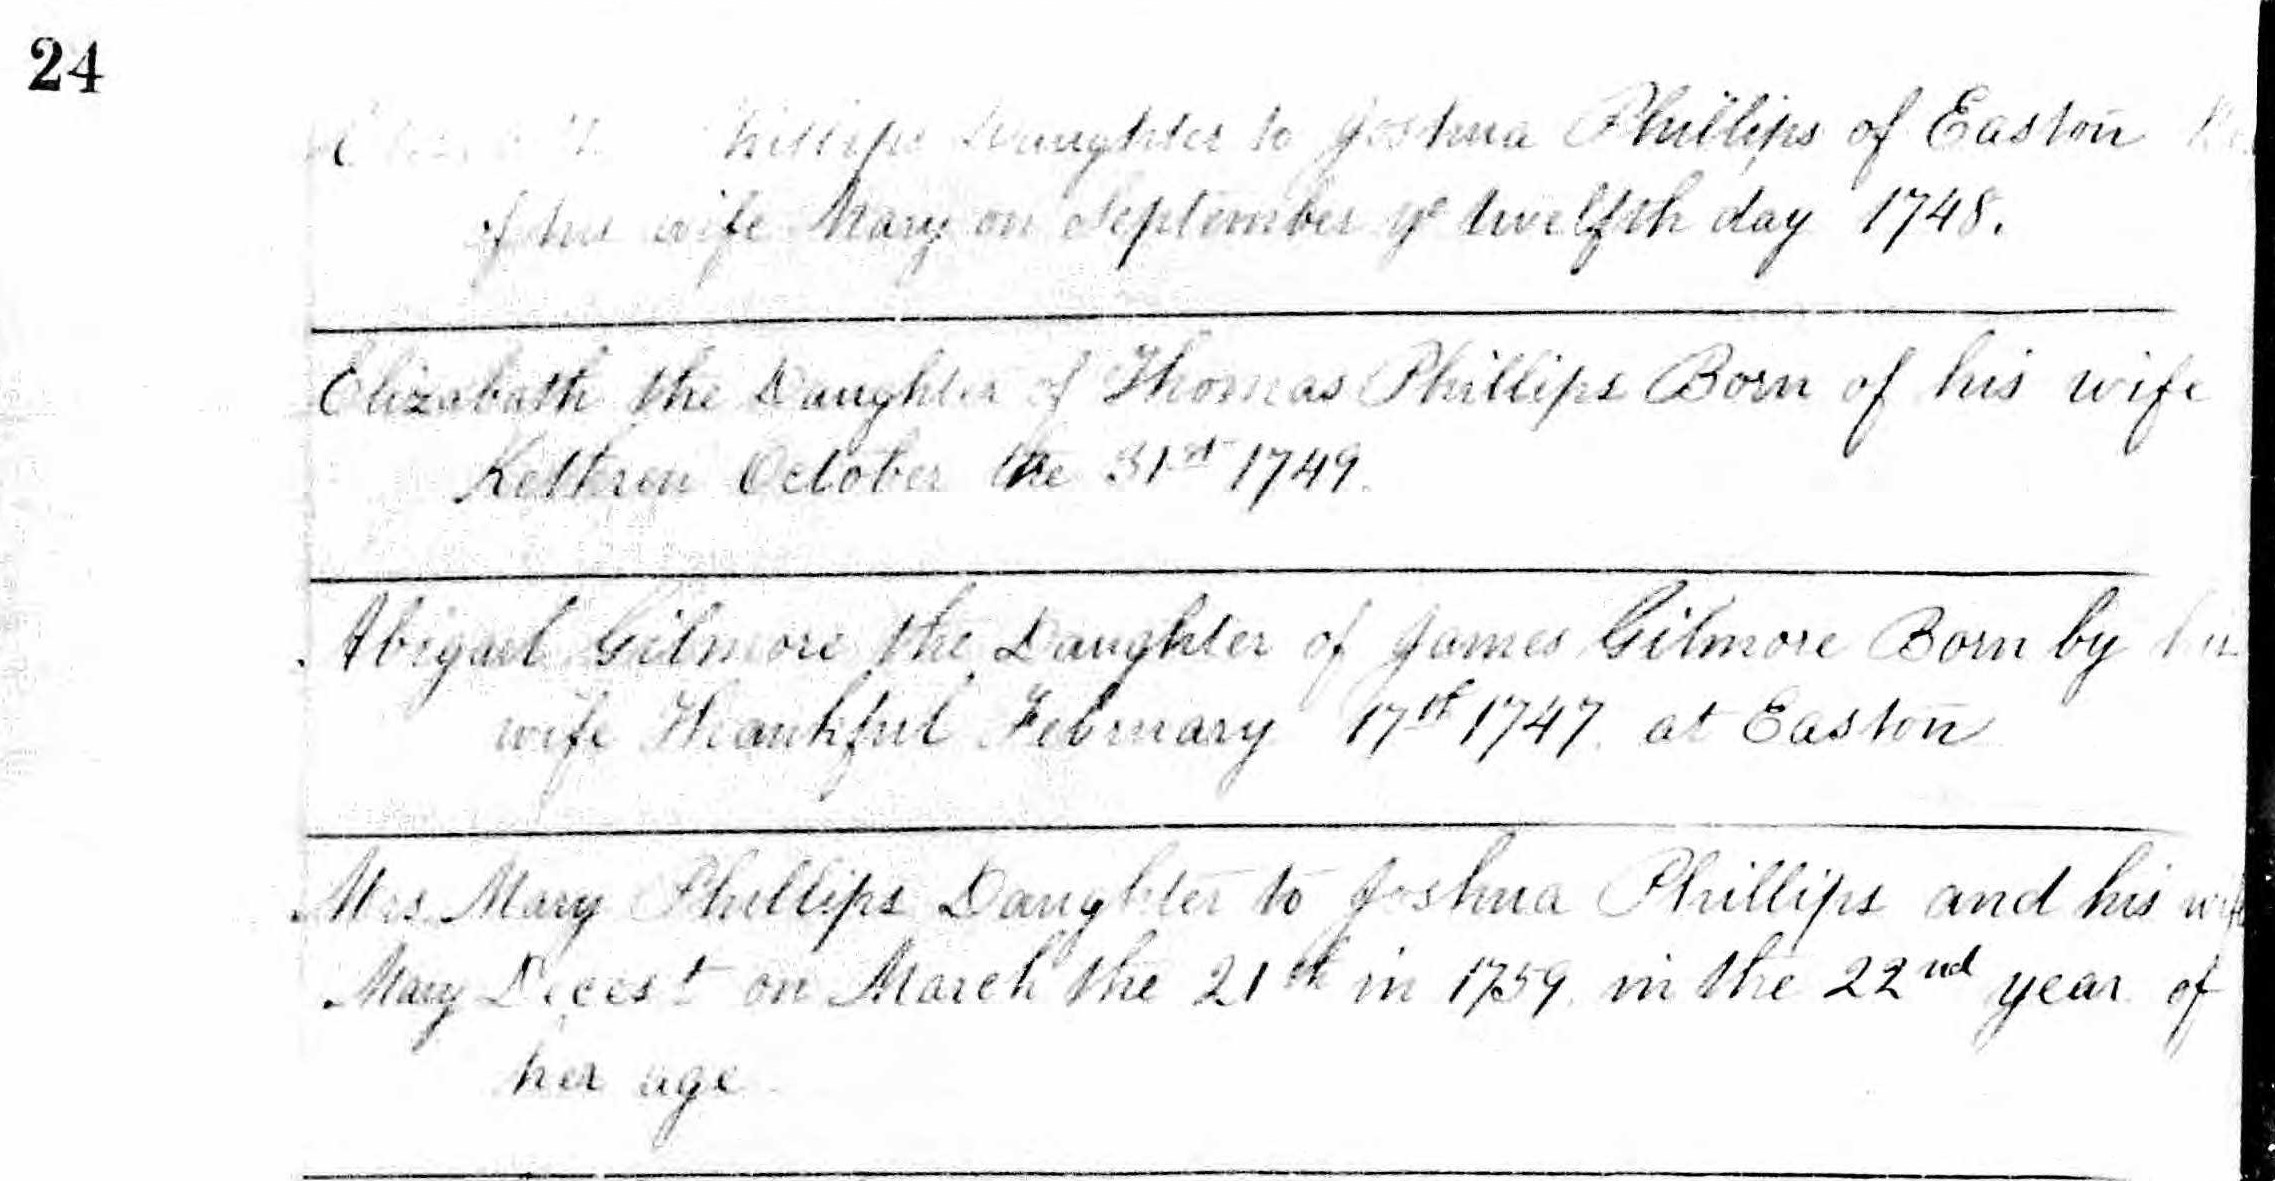 24
Phillips Daughter to Joshua Phillips of Easton
of his wife Mary on September ye twelfth day 1748.
Elizabath the Daughter of Thomas Phillips Born of his wife
Kethren October the 31st 1749.
Abigail Gilmore the Daughter of James Gilmore Born by his
wife Thankful February 17th 1747. at Easton
Mrs. Mary Phillips Daughter to Joshua Phillips and his wife
Mary Decest on March the 21th in 1759. in the 22nd year of
her age